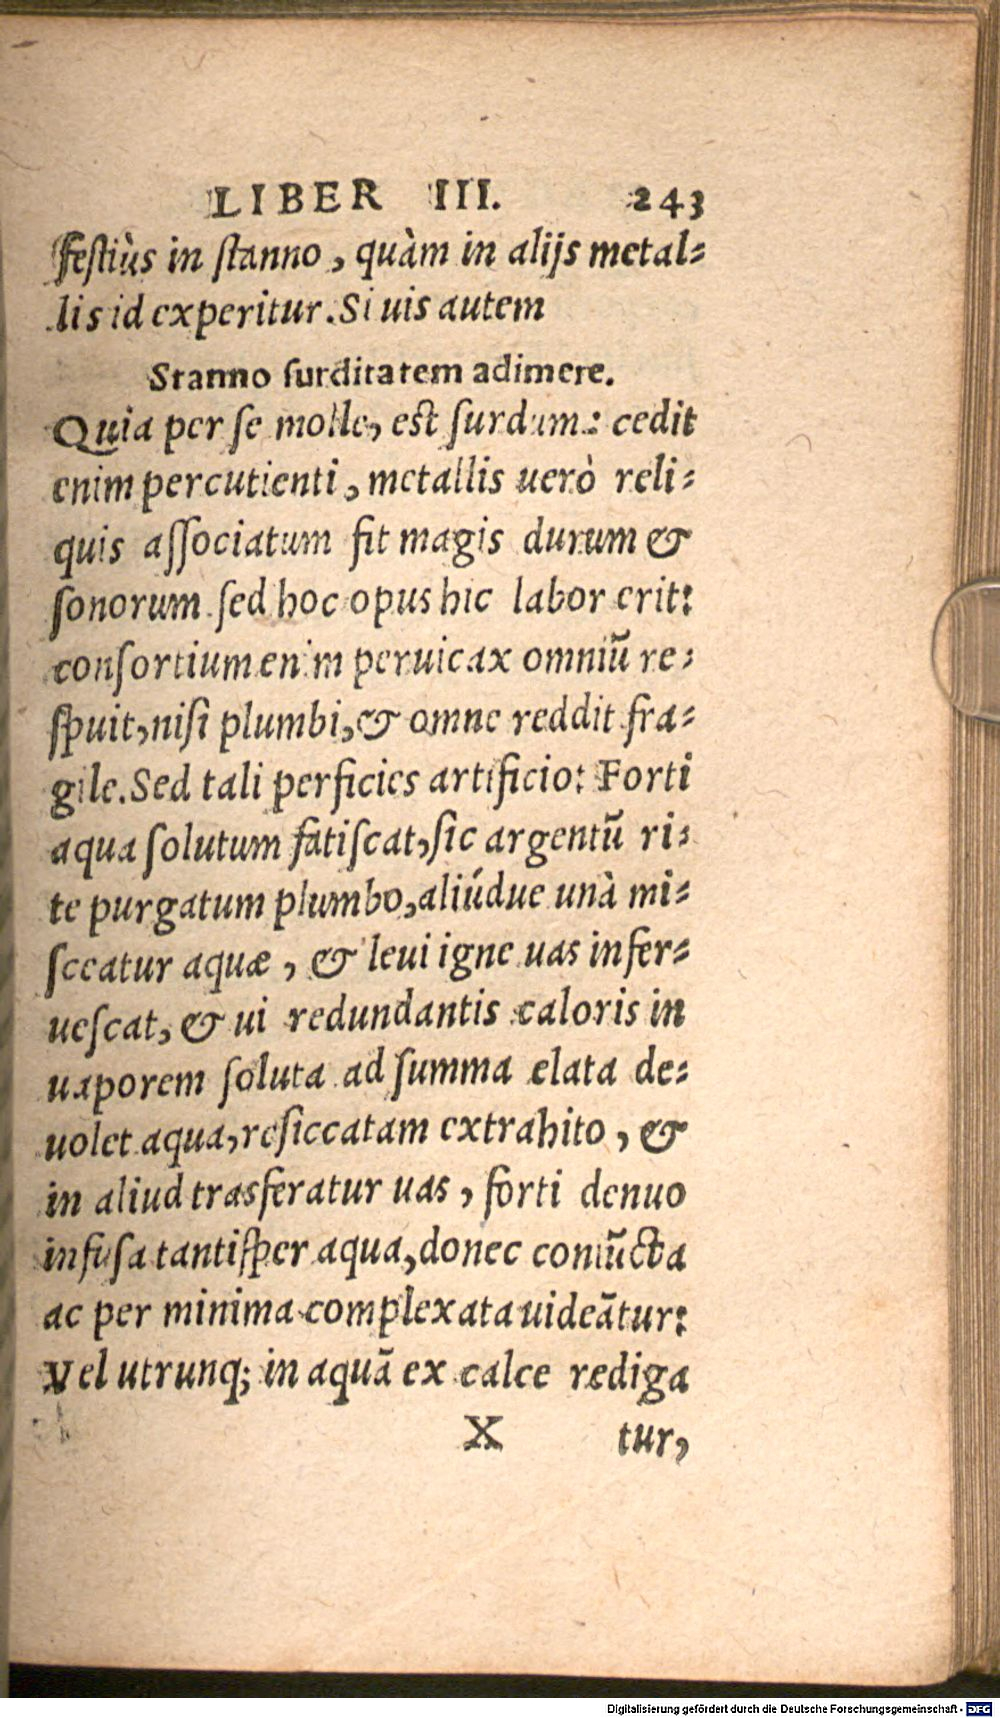 LIBER III. 243
festiùs in stanno, quàm in alijs metal-
lis id experitur. Si uis autem
Stanno surditatem adimere.
Quia per se molle, est surdum: cedit
enim percutienti, metallis uerò reli-
quis associatum fit magis durum &
sonorum sed hoc opus hic labor erit:
consortium enim peruicax omniũ re-
spuit, nisi plumbi, & omne reddit fra-
gile. Sed tali perficies artificio: Forti
aqua solutum fatiscat, sic argentũ ri-
te purgatum plumbo, aliúdue unà mi-
sceatur aquæ, & leui igne uas infer-
uescat, & ui redundantis caloris in
uaporem soluta ad summa elata de-
uolet aqua, resiccatam extrahito, &
in aliud trasferatur uas, forti denuo
infusa tantisper aqua, donec coniũcta
ac per minima complexata uideãtur:
Vel utrunq; in aquã ex calce rediga
X tur,
Digitalisierung gefördert durch die Deutsche Forschungsgemeinschaft - DFG